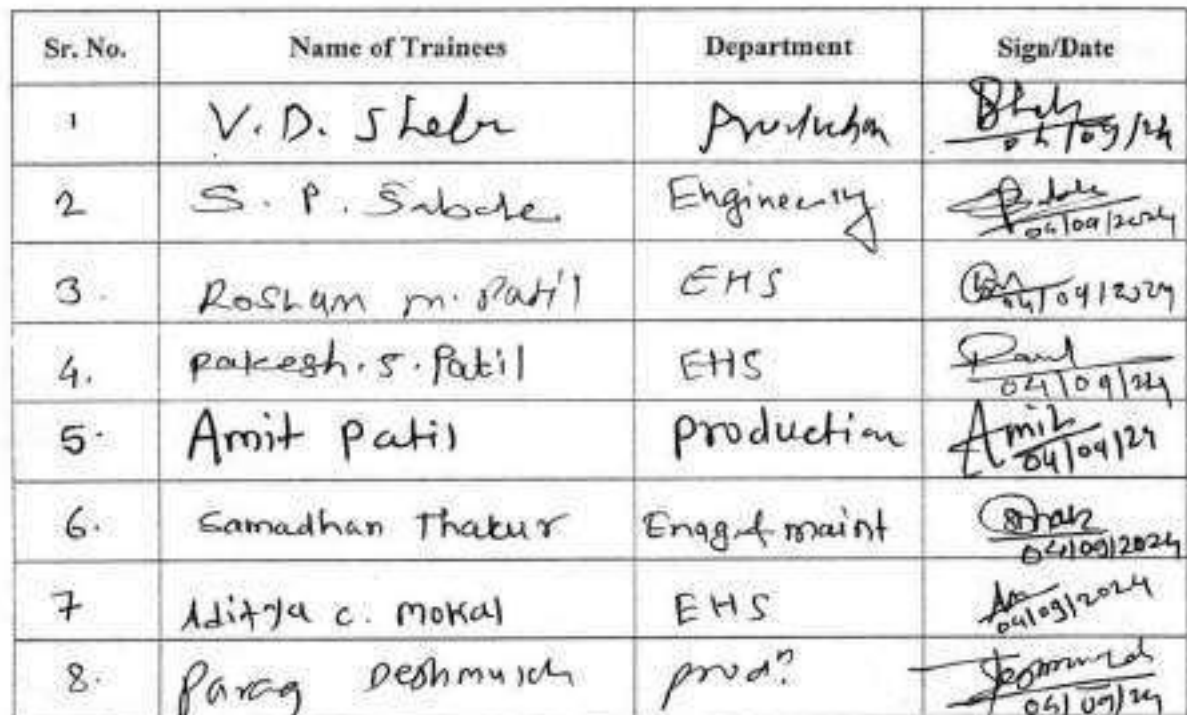 Sr. No. Name of Trainees Department Sign/Date
1 V. D. Production 04/09/24
2 S. P. Sabale Engineering 04/09/2024
3. Roshan m. Patil EHS 04/09/2024
4. Rakesh. S. Patil EHS Patil 04/09/24
5. Amit Patil production Amit 04/09/24
6. Samadhan Thakur Engg & maint 04/09/2024
7 Aditya C. Mokal EHS 04/09/2024
8. Parag Deshmukh prodn 04/09/24